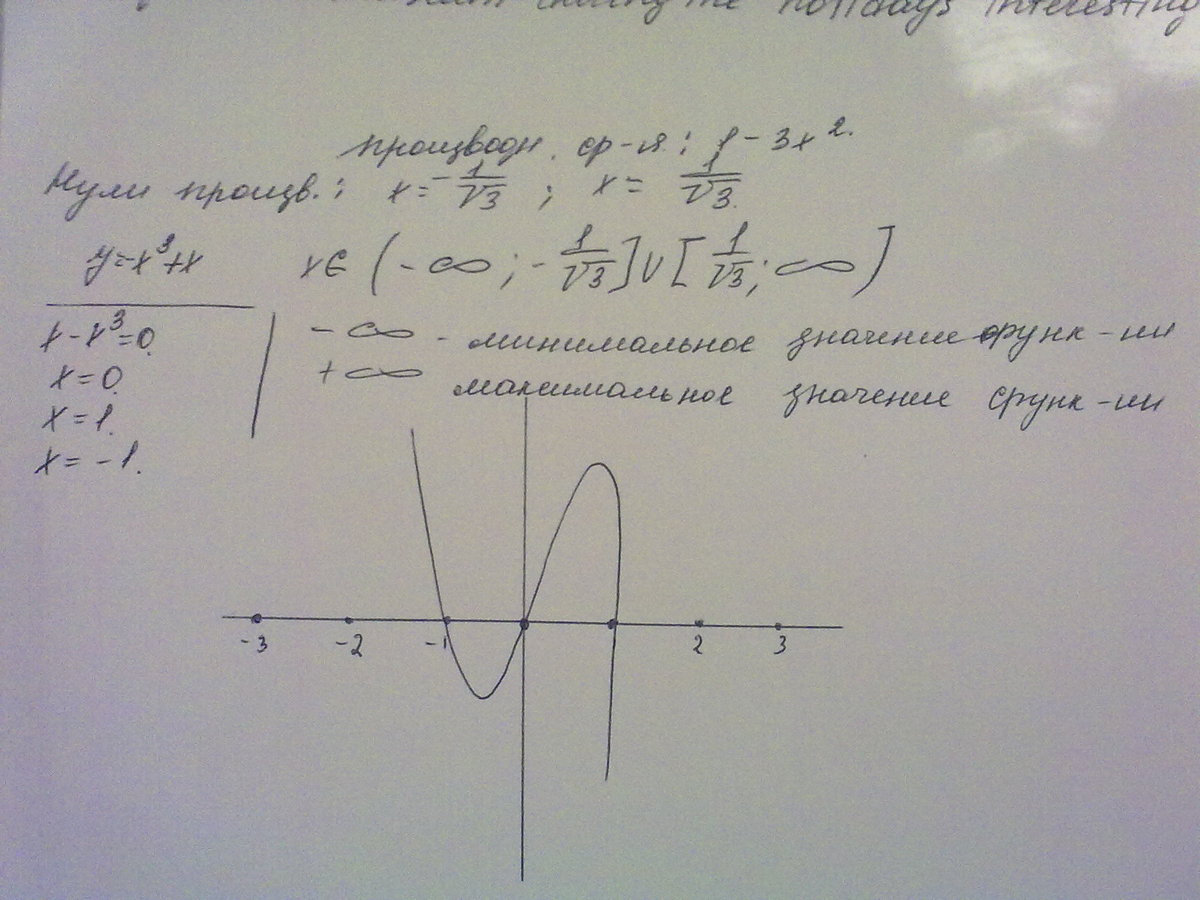 during the holidays interesting
производн. ф-я: 1 - 3x².
Нули произв.: x = -1/√3 ; x = 1/√3.
y=x³+x x∈ (-∞ ; -1/√3] ∪ [1/√3 ; ∞)
x-x³=0.
x=0.
x=1.
x=-1.
-∞ - минимальное значение функ-ии
+∞ максимальное значение функ-ии
-3 -2 -1 2 3